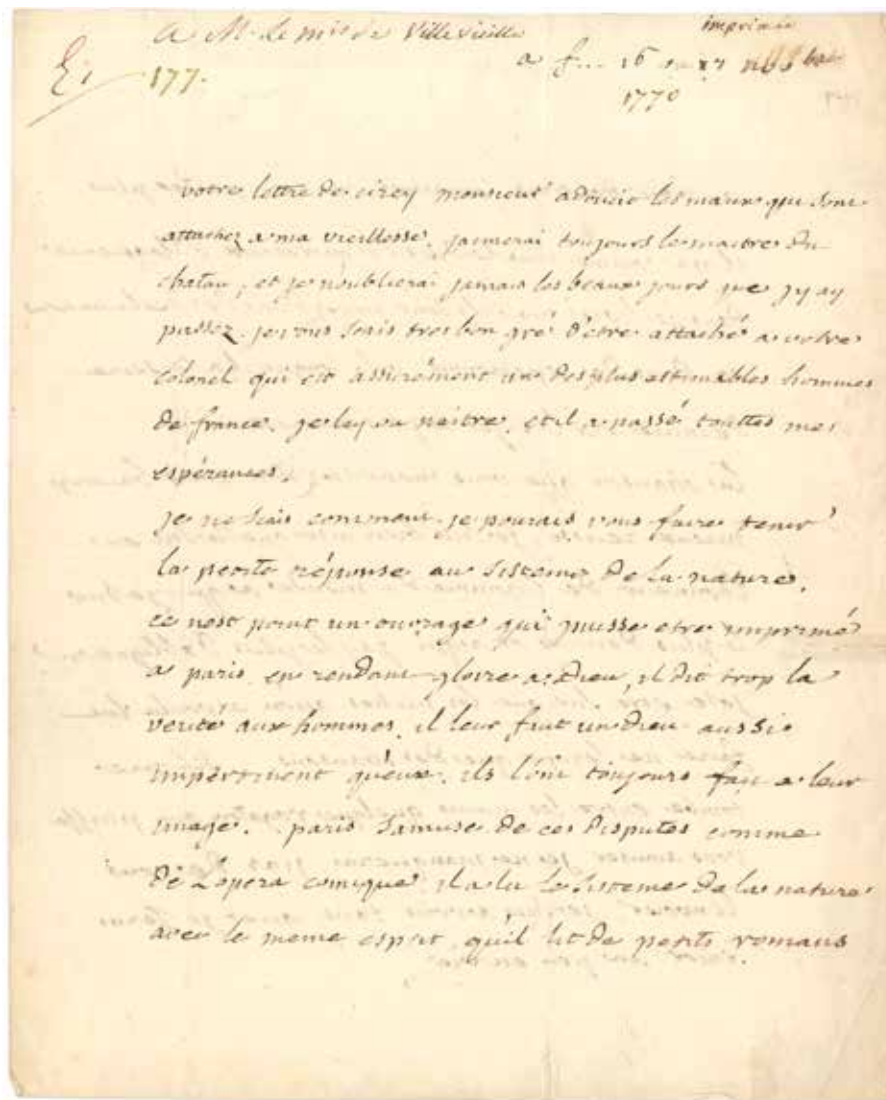 imprimée
A M. Le mis de Ville vieille
a f... 16
E1
177.
1770
votre lettre de cirey monsieur adoucit les maux qui sont
attachez a ma vieillesse. jaimerai toujours le maitre du
chatau, et je n'oublierai jamais les beaux jours que jy ay
passez. je vous sais tres bon gré d'etre attaché a votre
colonel qui est assurément un des plus estimables hommes
de france. je lay vu naitre, et il a passé touttes mes
espérances.
je ne sais comment je pourais vous faire tenir
la petite réponse au sisteme de la nature.
ce nest point un ouvrage qui puisse etre imprimé
a paris. en rendant gloire a Dieu, il dit trop la
verité aux hommes. il leur faut un dieu aussi
impertinent qu'eux. ils l'ont toujours fait a leur
image. paris samuse de ces disputes comme
de Lopera comique. il a lu le sisteme de la nature
avec le meme esprit qu'il lit de petits romans